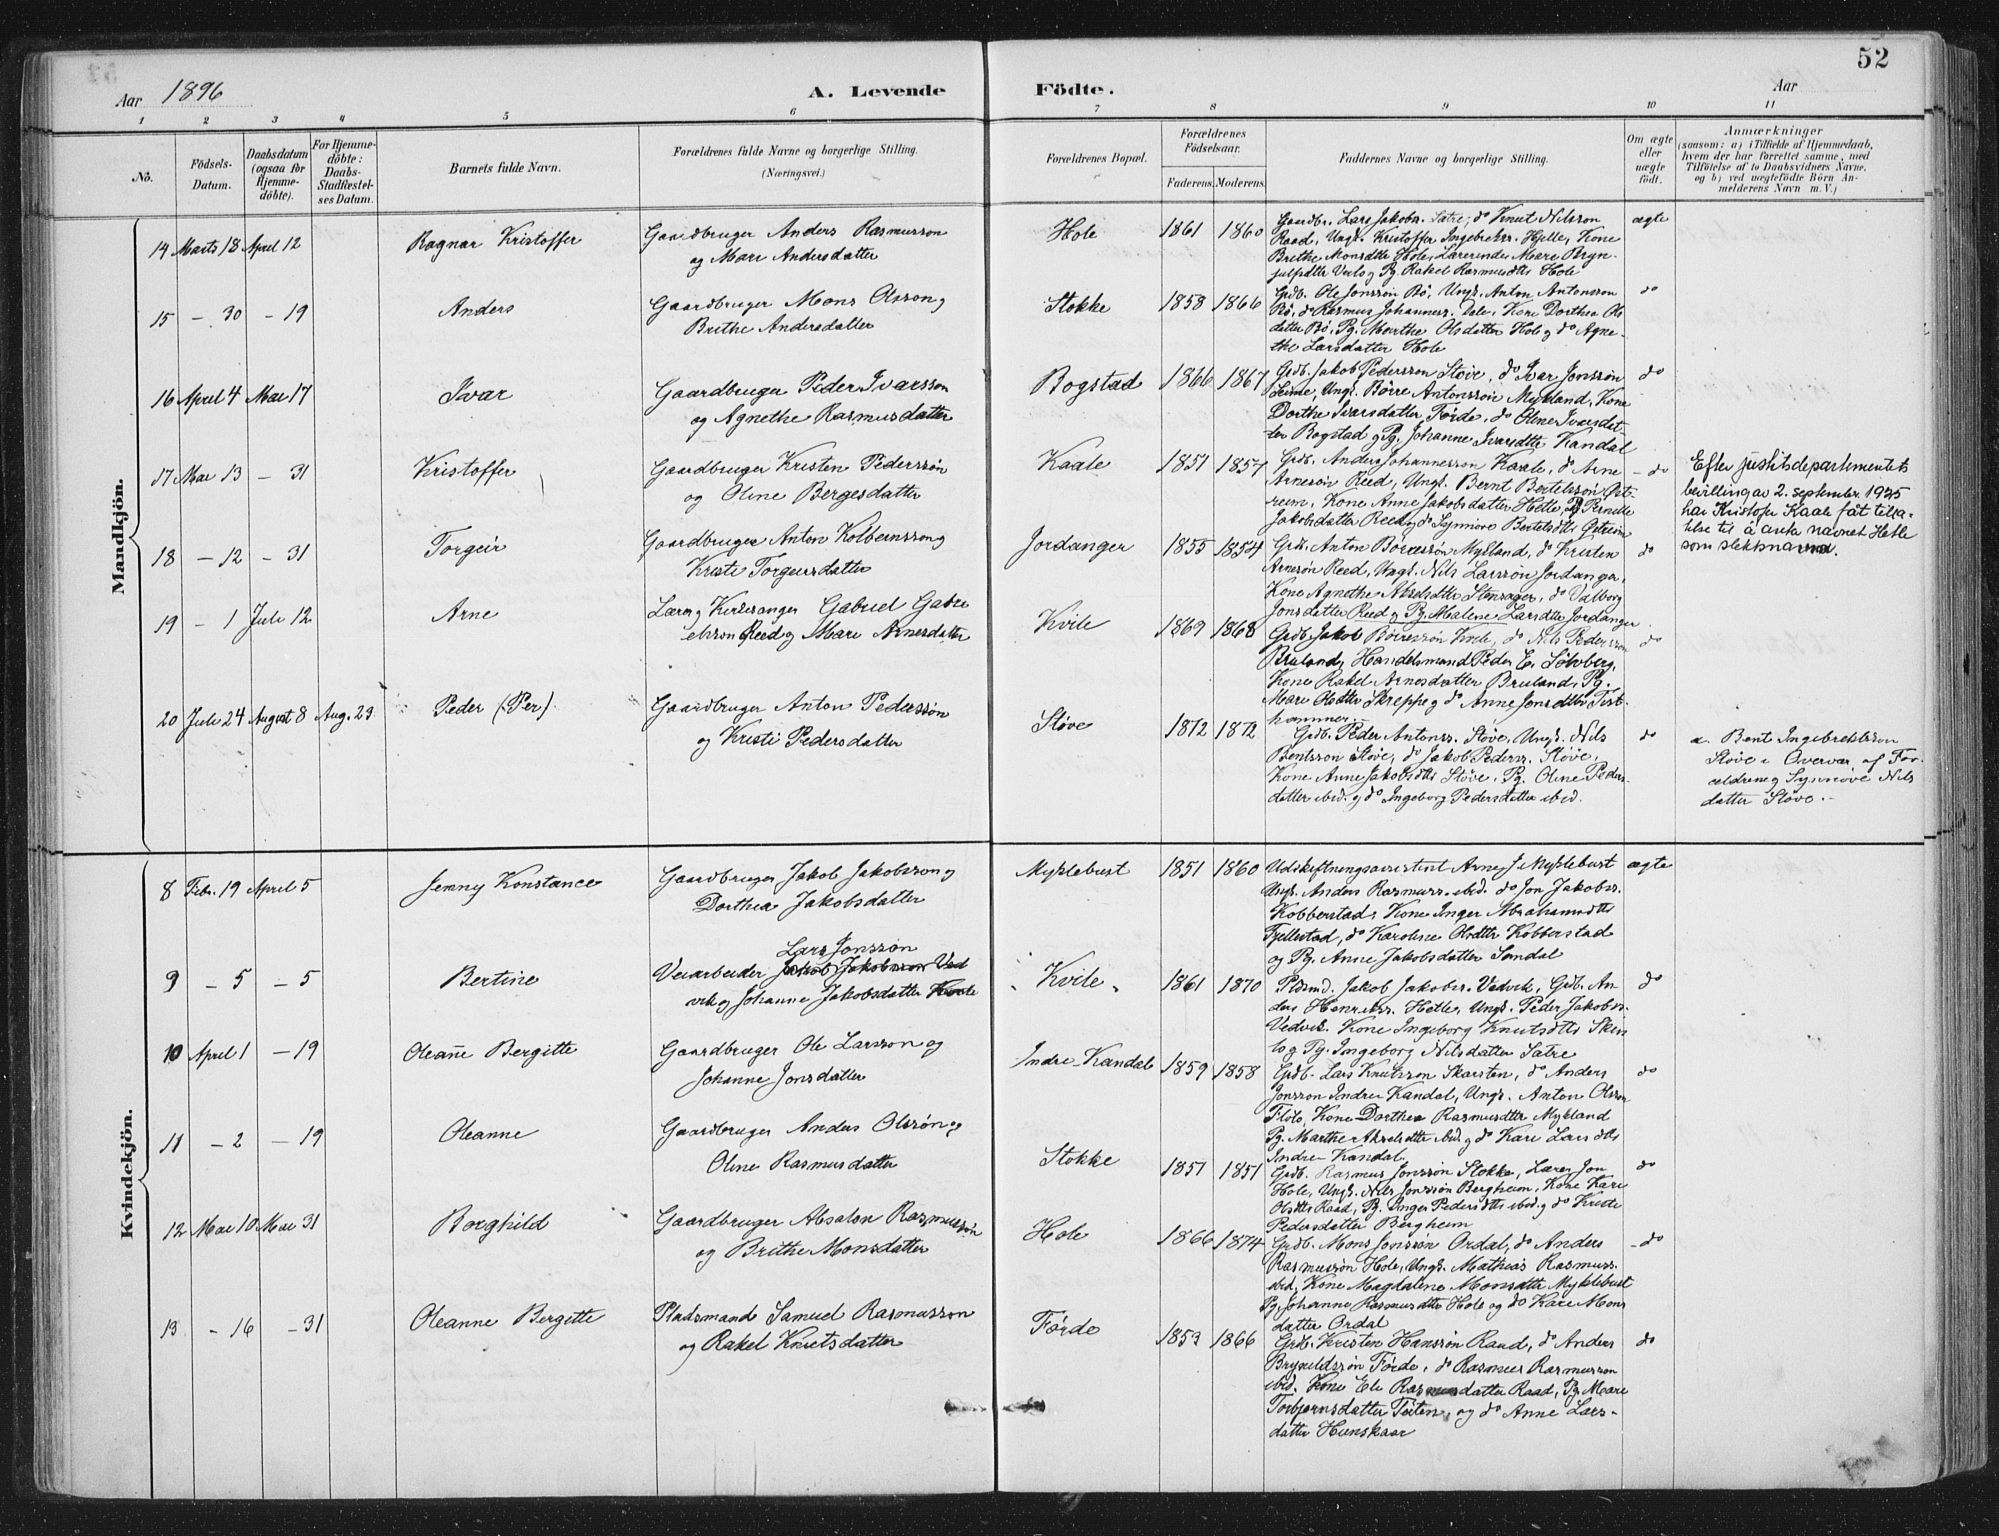 52
Aar 1896
A. Levende
Födte.
Aar
1 2 3 4 5 6 7 8 9 10 11
No.
Födsels-Datum.
Daabsdatum (ogsaa for Hjemmedöbte).
For Hjemmedöbte: Daabs-Stadfestelses Datum.
Barnets fulde Navn.
Forældrenes fulde Navne og borgerlige Stilling. (Næringsvei.)
Forældrenes Bopæl.
Forældrenes Födselsaar.
Faderens. Moderens.
Faddernes Navne og borgerlige Stilling.
Om ægte eller uægte födt.
Anmærkninger
(saasom: a) i Tilfælde af Hjemmedaab, hvem der har forrettet samme, med Tilföielse af to Daabsvidners Navne, og b) ved uægtefödte Börn Anmelderens Navn m. V.)
Mandkjön.
14 Marts 18 April 12 Ragnar Kristoffer
Gaardbruger Anders Rasmusson
og Mari Andersdatter
Hole 1861 1860
Gaardbr. Lars Jakobs. Sætre, do Knut Nilsson
Raad, Ungk. Kristoffer Ingebrikts. Hjelle, Kone
Brithe Monsdtr Hole, Lærerinde Mari Bryn-
julfsdtr Veels og Pg. Rakel Rasmusdtr Hole
ægte
15 - 30 - 19 Anders
Gaardbruger Mons Olsson og
Brithe Andersdatter
Stokke 1858 1866
Grdb. Ole Jonssøn Bö, Ungk. Anton Antonsson
Bö, do Rasmus Johanness. Dale, Kone Dorthea Ols
datter Bö, Pg. Marthe Olsdatter Hole og do Agne-
the Larsdatter Hole
do
16 April 4 Mai 17 Ivar
Gaardbruger Peder Ivarsson
og Agnethe Rasmusdatter
Bogstad 1866 1867
Grdb. Jakob Pederssøn Støve, do Ivar Jonssøn
Leime, Ungk. Börre Antonssøn Mykland, Kone
Dorthe Ivarsdatter Förde, do Oline Ivarsdat-
ter Bogstad og Pg. Johanne Ivarsdtr Kandal
do
17 Mai 13 - 31 Kristoffer
Gaardbruger Kristen Pederssøn
og Oline Bergesdatter
Kaale 1851 1857
Grdb. Anders Johannesson Kaale, do Arne
Arnesøn Reed, Ungk. Bernt Bertelssøn Øst-
reim, Kone Anne Jakobsdatter Hetle, Pg Pernille
Jakobsdatter Reed og do Synnöve Bertelsdtr Østreim
do
Efter justitsdepartementets
bevilling av 2. september 1925
har Kristofer Kaale fåt tilla-
telse til å anta navnet Hetle
som slektsnavn.
18 - 12 - 31 Torgeir
Gaardbruger Anton Kolbeinsson og
Kristi Torgeirsdatter
Jordanger 1855 1854
Grdb. Anton Börressøn Mykland, do Kristen
Arnesøn Reed, Ungk. Nils Larssøn Jordanger,
Kone Agnethe Akselsdtr Stensager, do Valborg
Jonsdatter Reed og Pg. Malene Larsdtr Jordanger
do
19 - 1 Juli 12 Arne
Lærer og Kirkesanger Gabriel Gabri
elsson Reed og Mari Arnesdatter
Kvile 1869 1868
Grdb. Jakob Börressøn Kvile, do Nils Pedersson
Bruland, Handelsmand Peder E. Sölvberg,
Kone Rakel Arnesdatter Bruland, Pg.
Mari Olsdtr Skreppe og do Anne Jonsdtr Tist-
hammer
do
20 Juli 24 August 8 Aug. 23 Peder (Per)
Gaardbruger Anton Pederssøn
og Kristi Pedersdatter
Støve 1872 1872
Grdb. Peder Antons. Støve, Ungk. Nils
Bentsson Støve, do Jakob Peders. Støve,
Kone Anne Jakobsdtr Støve, Pg. Oline Peders-
datter ibid. og do Ingeborg Pedersdatter ibid.
do
a. Bent Ingebrektsson
Støve i Overvær af For-
ældrene og Synnöve Nils
datter Støve.-
Kvindekjön.
8 Febr. 19 April 5 Jenny Konstance
Gaardbruger Jakob Jakobsson og
Dorthea Jakobsdatter
Myklebust 1851 1860
Udskiftningsassistent Arne J. Myklebust
Ungk. Anders Rasmuss. ibid. do Jon Jakobss.
Kobberstad, Kone Inger Abrahamsdtr
Fjellestad, do Karoline Olsdtr Kobberstad
og Pg. Anne Jakobsdatter Søndal
ægte
9 - 5 - 5 Bertine
Lars Jonssøn
Veiarbeider Jakob Jakobsson Ved
vik og Johanne Jakobsdatter Kvile
Kvile 1861 1870
Pldsmd. Jakob Jakobss. Vedvik, Grdb. An-
ders Henrikss. Hetle, Ungk. Peder Jakobss.
Vedvik. Kone Ingeborg Knutsdtr Skin
lo og Pg. Ingeborg Nilsdatter Sætre
do
10 April 1 - 19 Oleanne Bergitte
Gaardbruger Ole Larsson og
Johanne Jonsdatter
Indre-Kandal 1859 1858
Grdb. Lars Knutsson Skarsten, do Anders
Jonsson Indre Kandal, Ungk. Anton Olsson
Flölo, Kone Dorthea Rasmusdtr Mykland
Pg. Marthe Akselsdtr ibid. og do Kari Larsdtr
Indre Kandal.
do
11 - 2 - 19 Oleanne
Gaardbruger Anders Olssøn og
Oline Rasmusdatter
Stokke 1851 1851
Grdb. Rasmus Jonssøn Stokke, Lærer Jon
Hole, Ungk. Nils Jonssøn Bergheim, Kone Kari
Olsdtr Raad, Pg. Inger Pedersdtr ibid. og do Kristi
Pedersdatter Bergheim
do
12 Mai 10 Mai 31 Borghild
Gaardbruger Absalon Rasmussøn
og Brithe Monsdatter
Hole 1866 1874
Grdb. Mons Jonssøn Ordal, do Anders
Rasmussøn Hole, Ungk. Mathias Rasmuss.
ibid, Kone Magdalene Monsdtr Myklebust
Pg. Johanne Rasmusdtr Hole og do Kari Mons
datter Ordal
do
13 - 16 - 31 Oleanne Bergitte
Pladsmand Samuel Rasmusson
og Rakel Knutsdatter
Förde 1853 1866
Grdb. Kristen Hanssøn Raad, do Anders
Brynildssøn Förde, do Rasmus Rasmusson
ibid. Kone Eli Rasmusdatter Raad, Pg. Mari
Torbjørnsdatter Teiten, og do Anne Lars-
datter Hunskaar
do